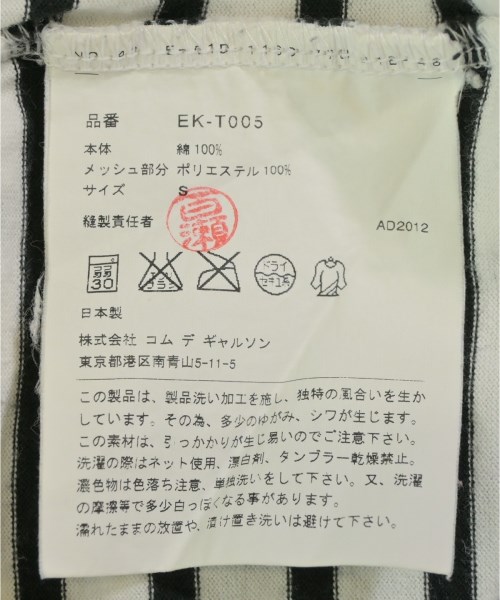 品番 EK-T005
本体 綿100%
メッシュ部分 ポリエステル100%
サイズ S
縫製責任者
AD2012
弱 30
ドライ
セキユ系
日本製
株式会社 コム デ ギャルソン
東京都港区南青山5-11-5
この製品は、製品洗い加工を施し、独特の風合いを生か
しています。その為、多少のゆがみ、シワが生じます。
この素材は、引っかかりが生じ易いのでご注意下さい。
洗濯の際はネット使用、漂白剤、タンブラー乾燥禁止。
濃色物は色落ち注意、単独洗いをして下さい。又、洗濯
の摩擦等で多少白っぽくなる事があります。
濡れたままの放置や、漬け置き洗いは避けて下さい。